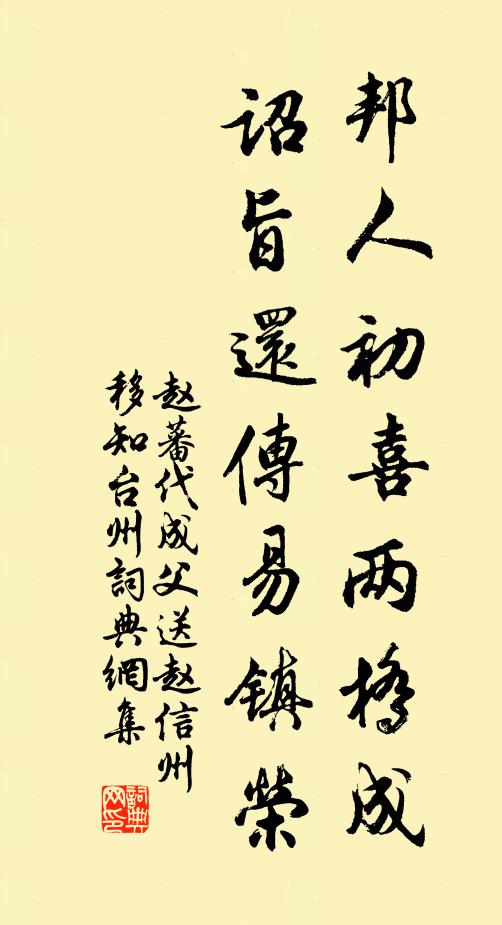 邦人初喜两桥成
詔旨還傳易鎮榮
赵蕃代成父送赵信州
移知台州詞典網集
詞典网印